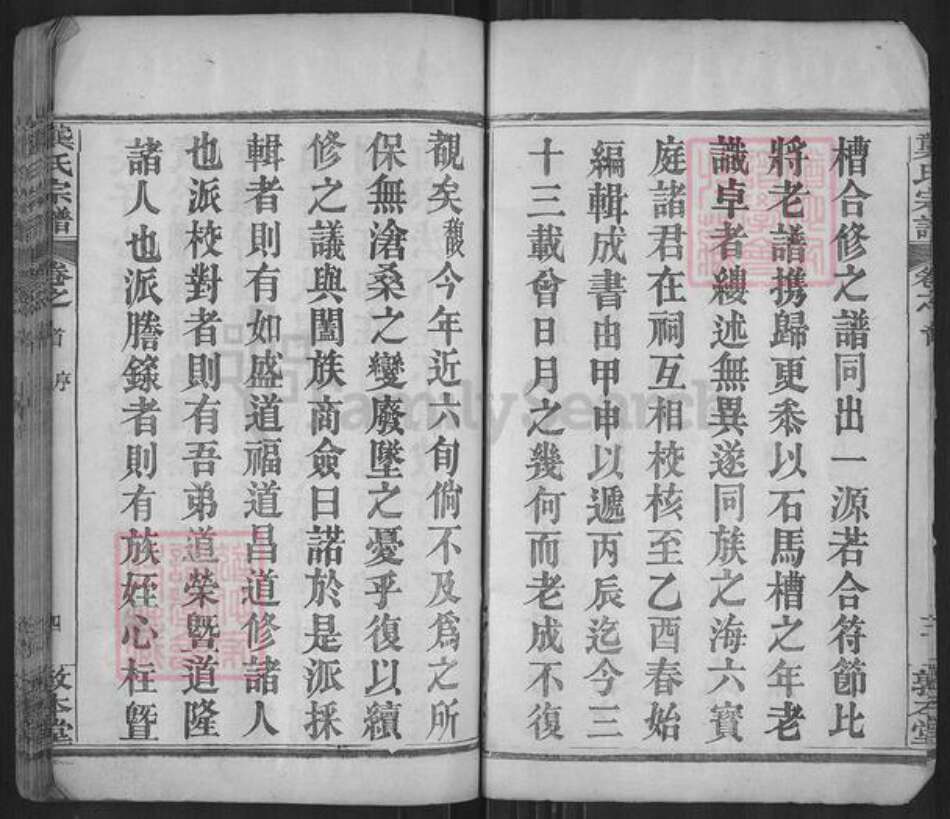 槽合修之譜同出一源若合符節比
將老譜携歸更叅以石馬槽之年老
識卓者縷述無異遂同族之海六寳
庭諸君在祠互相校核至乙酉春始
編輯成書由甲申以遞丙辰迄今三
十三載曾日月之幾何而老成不復
覩矣馥今年近六旬倘不及爲之所
保無滄桑之變廢墜之憂乎復以續
修之議與闔族商僉曰諾於是派採
輯者則有如盛道福道昌道修諸人
也派校對者則有吾弟道榮曁道隆
諸人也派謄錄者則有族姪心柱曁
氏宗譜
卷之首 序
四
敦本堂
FamilySearch